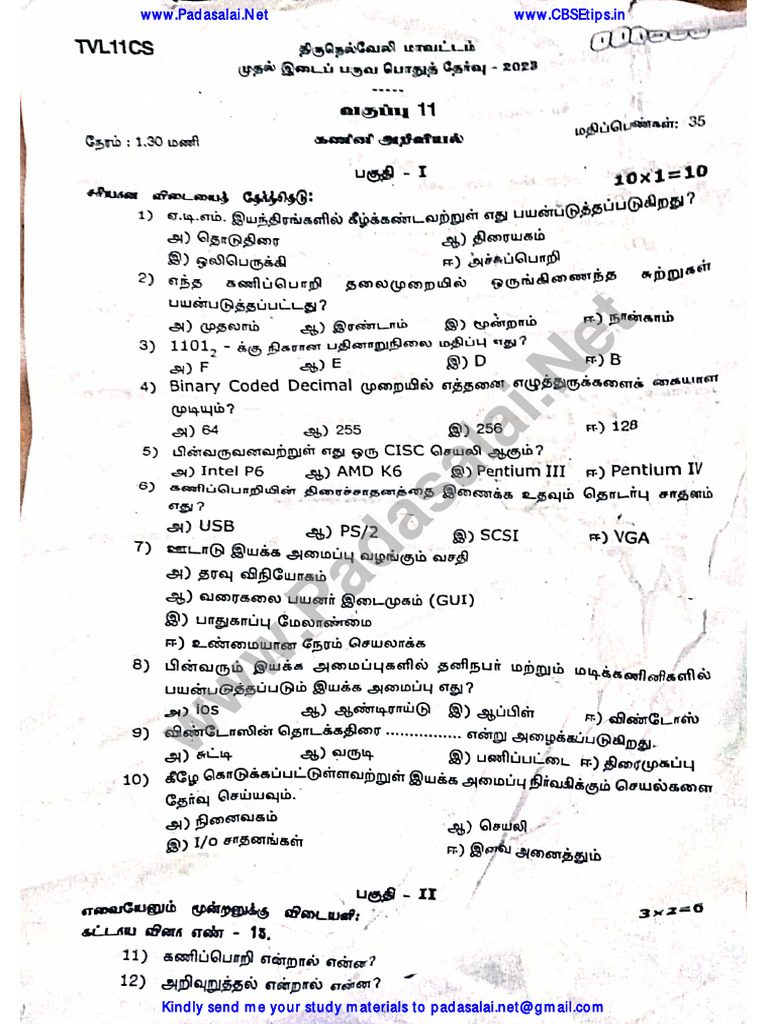 www.Padasalai.Net www.CBSEtips.in
TVL11CS திருநெல்வேலி மாவட்டம்
முதல் இடைப் பருவ பொதுத் தேர்வு - 2023
-----
வகுப்பு 11
நேரம் : 1.30 மணி கணினி அறிவியல் மதிப்பெண்கள்: 35
பகுதி - I
சரியான விடையைத் தேர்ந்தெடு: 10x1=10
1) ஏ.டி.எம். இயந்திரங்களில் கீழ்க்கண்டவற்றுள் எது பயன்படுத்தப்படுகிறது?
அ) தொடுதிரை ஆ) திரையகம்
இ) ஒலிபெருக்கி ஈ) அச்சுப்பொறி
2) எந்த கணிப்பொறி தலைமுறையில் ஒருங்கிணைந்த சுற்றுகள்
பயன்படுத்தப்பட்டது?
அ) முதலாம் ஆ) இரண்டாம் இ) மூன்றாம் ஈ) நான்காம்
3) 1101₂ - க்கு நிகரான பதினாறுநிலை மதிப்பு எது?
அ) F ஆ) E இ) D ஈ) B
4) Binary Coded Decimal முறையில் எத்தனை எழுத்துருக்களைக் கையாள
முடியும்?
அ) 64 ஆ) 255 இ) 256 ஈ) 128
5) பின்வருவனவற்றுள் எது ஒரு CISC செயலி ஆகும்?
அ) Intel P6 ஆ) AMD K6 இ) Pentium III ஈ) Pentium IV
6) கணிப்பொறியின் திரைச்சாதனத்தை இணைக்க உதவும் தொடர்பு சாதனம்
எது?
அ) USB ஆ) PS/2 இ) SCSI ஈ) VGA
7) ஊடாடு இயக்க அமைப்பு வழங்கும் வசதி
அ) தரவு விநியோகம்
ஆ) வரைகலை பயனர் இடைமுகம் (GUI)
இ) பாதுகாப்பு மேலாண்மை
ஈ) உண்மையான நேரம் செயலாக்க
8) பின்வரும் இயக்க அமைப்புகளில் தனிநபர் மற்றும் மடிக்கணினிகளில்
பயன்படுத்தப்படும் இயக்க அமைப்பு எது?
அ) ios ஆ) ஆண்டிராய்டு இ) ஆப்பிள் ஈ) விண்டோஸ்
9) விண்டோஸின் தொடக்கதிரை ................ என்று அழைக்கப்படுகிறது.
அ) சுட்டி ஆ) வருடி இ) பணிப்பட்டை ஈ) திரைமுகப்பு
10) கீழே கொடுக்கப்பட்டுள்ளவற்றுள் இயக்க அமைப்பு நிர்வகிக்கும் செயல்களை
தேர்வு செய்யவும்.
அ) நினைவகம் ஆ) செயலி
இ) I/o சாதனங்கள் ஈ) இவை அனைத்தும்
பகுதி - II
எவையேனும் மூன்றனுக்கு விடையளி: 3x2=6
கட்டாய வினா எண் - 15.
11) கணிப்பொறி என்றால் என்ன?
12) அறிவுறுத்தல் என்றால் என்ன?
www.Padasalai.Net
Kindly send me your study materials to padasalai.net@gmail.com